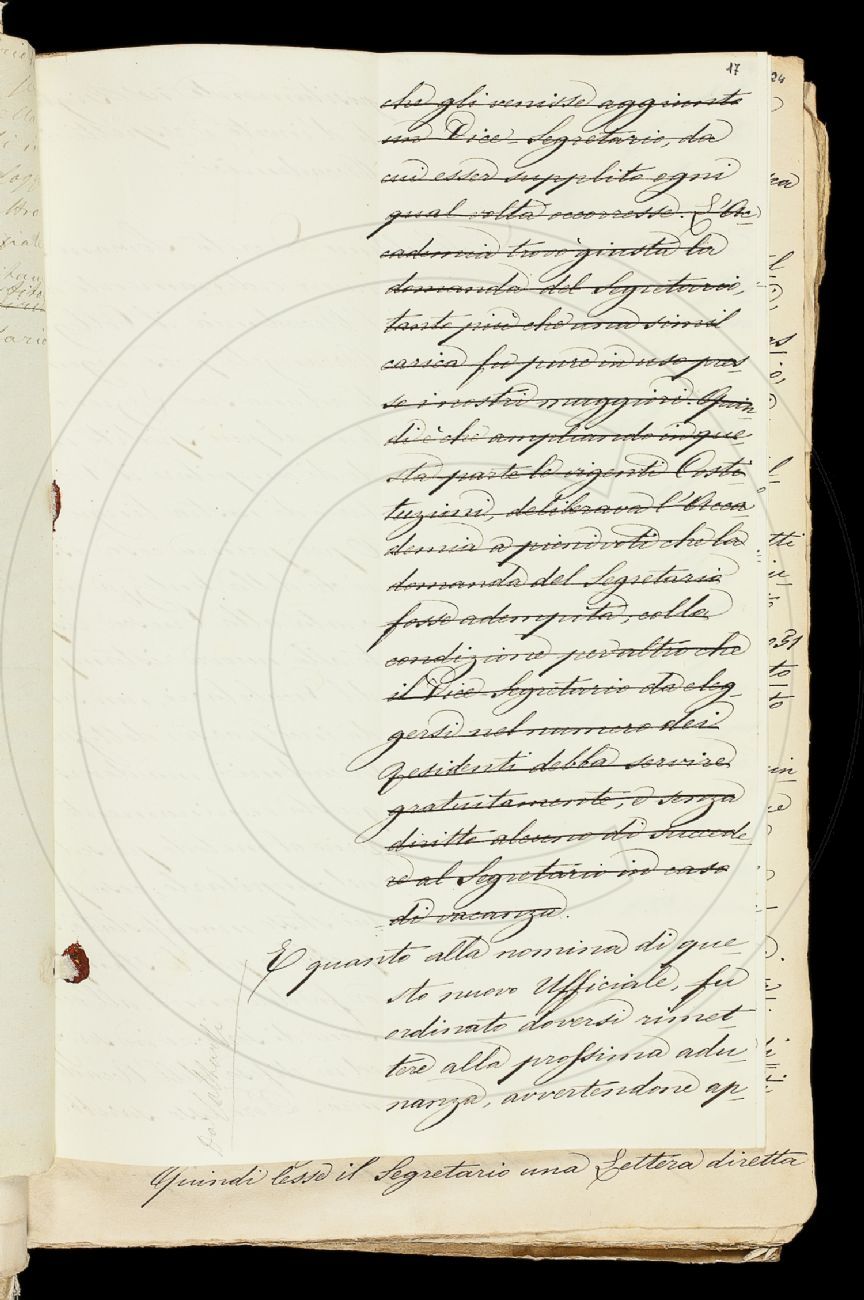 17
24
che gli venisse aggiunto
un Vice-Segretario, da
cui esser supplito ogni
qual volta occorresse. L'Ac-
cademia trovò giusta la
domanda del Segretario,
tanto più che una simil
carica fu pure in uso pres-
so i nostri maggiori. Quin-
di è che ampliando in que-
sta parte le vigenti Costi-
tuzioni, deliberava l'Acca-
demia a pieni voti che la
domanda del Segretario
fosse adempita, colla
condizione per altro che
il Vice Segretario da eleg-
gersi nel numero dei
Residenti debba servire
gratuitamente, e senza
diritto alcuno di succede-
re al Segretario in caso
di vacanza.
E quanto alla nomina di que-
sto nuovo Ufficiale, fu
ordinato doversi rimet-
tere alla prossima adu-
nanza, avvertendone ap-
Quindi lesse il Segretario una Lettera diretta